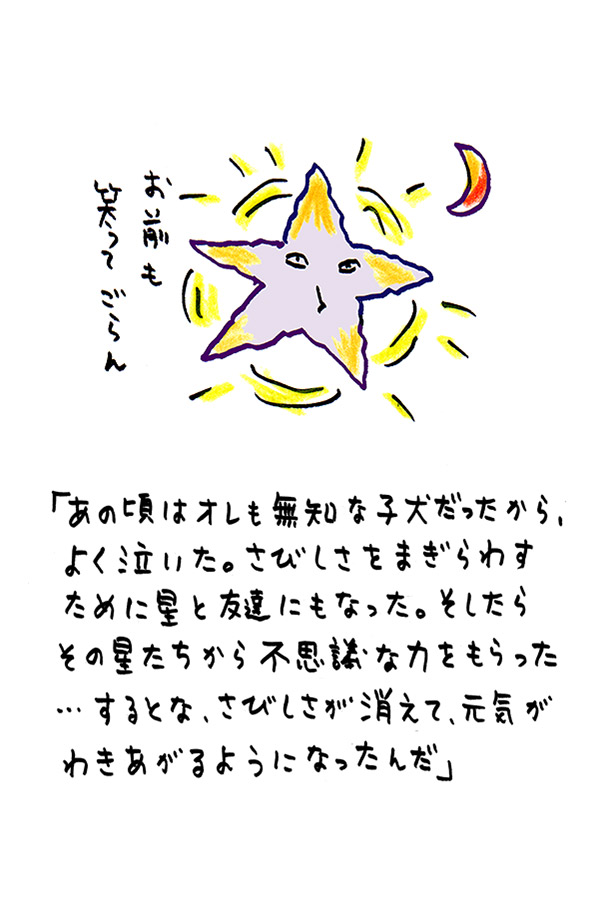 お前も
笑ってごらん
「あの頃はオレも無知な子犬だったから、
よく泣いた。さびしさをまぎらわす
ために星と友達にもなった。そしたら
その星たちから不思議な力をもらった
…するとな、さびしさが消えて、元気が
わきあがるようになったんだ」